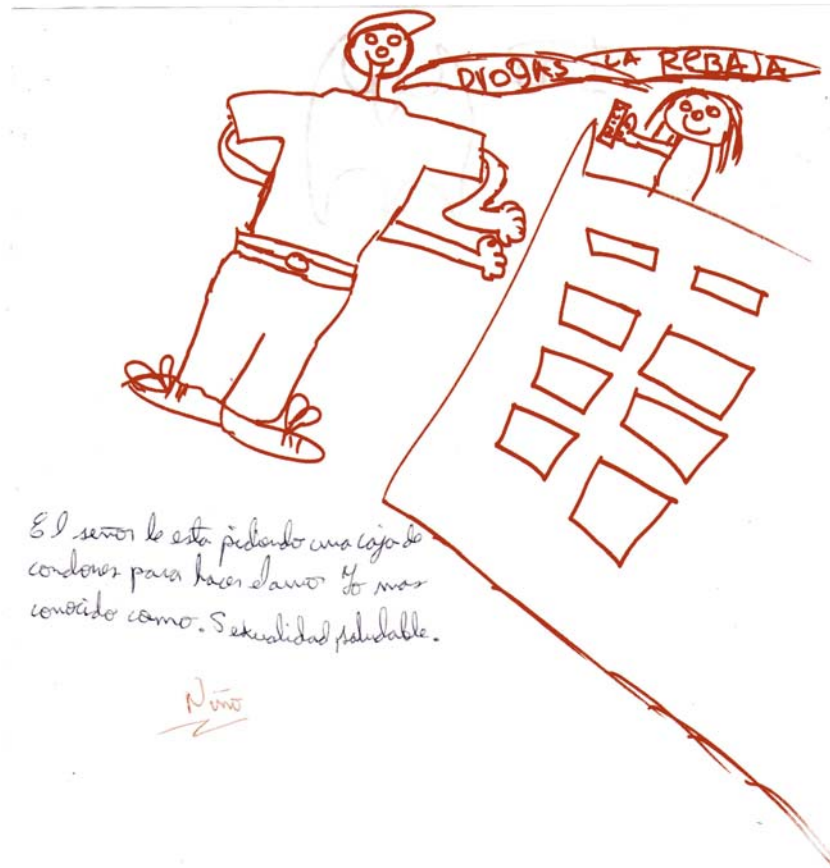 Drogas LA REBAJA
El señor le esta pidiendo una caja de
condones para hacer el amor Y lo mas
conocido como. Sexualidad saludable.
Niño